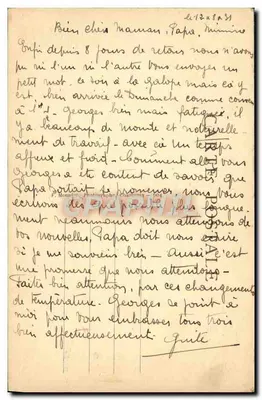 le 12-8-31
Bien chers Maman, Papa, Mimine
Enfin depuis 8 jours de retour nous n'avons
pu ni l'un ni l'autre vous envoyer un
petit mot, ce soir à la galope mais ça y
est, bien arrivée le Dimanche comme convenu
à Georges bien mais fatigué, il
y a beaucoup de monde et naturelle-
ment de travail - avec ça un temps
affreux et froid - Comment allez vous
Georges a été content de savoir que
Papa sortait se promener, nous vous
écrivons
ment néanmoins nous attendons de
vos nouvelles, Papa doit nous écrire
si je me souviens bien - Aussi c'est
une promesse que nous attendons -
Faites bien attention, par ces changements
de température. Georges se joint à
moi pour vous embrasser tous trois
bien affectueusement
Guite
CARTE POSTALE